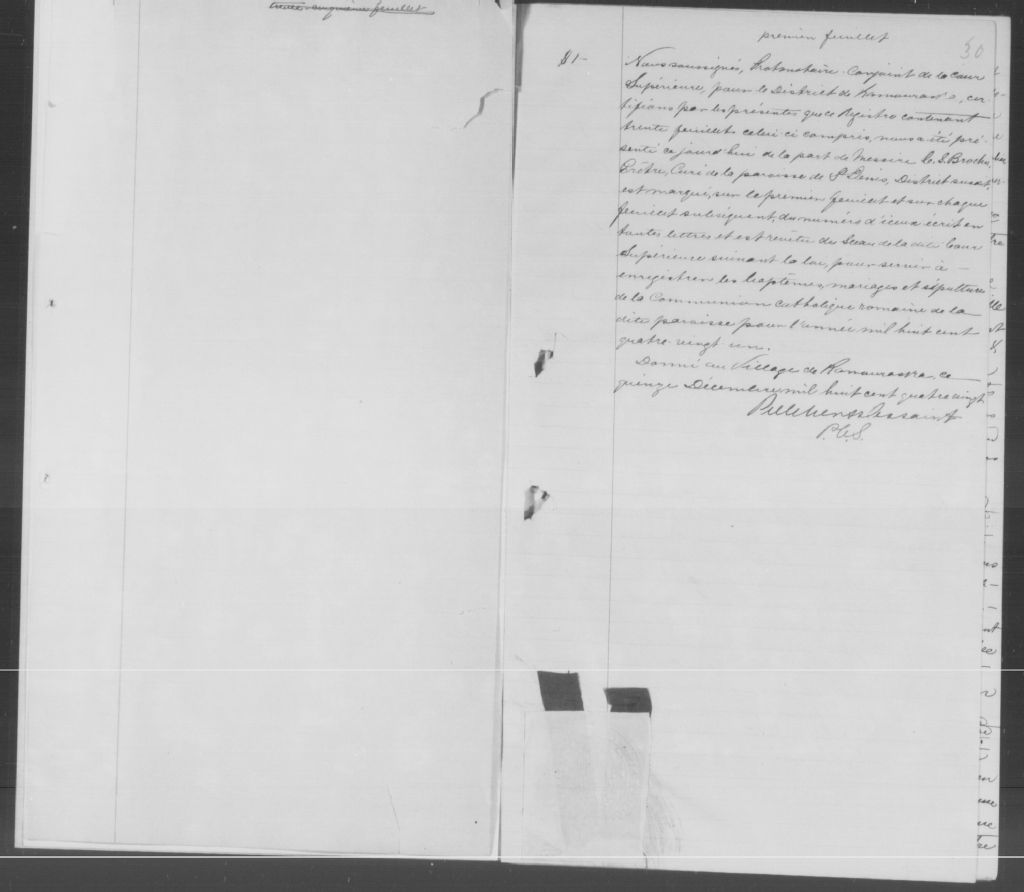 trente-cinquième feuillet
premier feuillet
30
$1-
Nous soussignés, Protonotaire-Conjoint de la Cour
Supérieure, pour le District de Kamouraska, cer-
tifions par les présentes que ce Registre contenant
trente feuillets celui ci compris, nous a été pré-
senté ce jourd'hui de la part de Messire
Prêtre, Curé de la paroisse de St Denis, District susdit,
est marqué, sur le premier feuillet et sur chaque
feuillet subséquent, du numéro d'iceux écrit en
toutes lettres et est revêtu du Sceau de la dite Cour
Supérieure suivant la loi, pour servir à -
enregistrer les baptêmes, mariages et sépultures
de la Communion catholique romaine de la
dite paroisse pour l'année mil huit cent
quatre-vingt un.
Donné au Village de Kamouraska, ce
quinze Décembre mil huit cent quatre vingt
P.C.S.